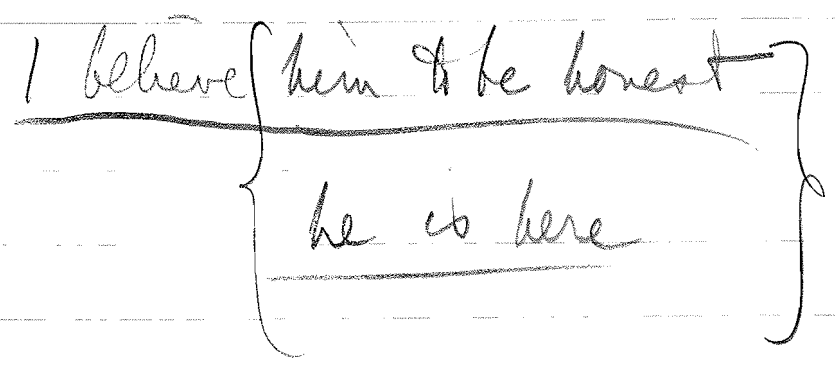 I believe { him to be honest }
he is here